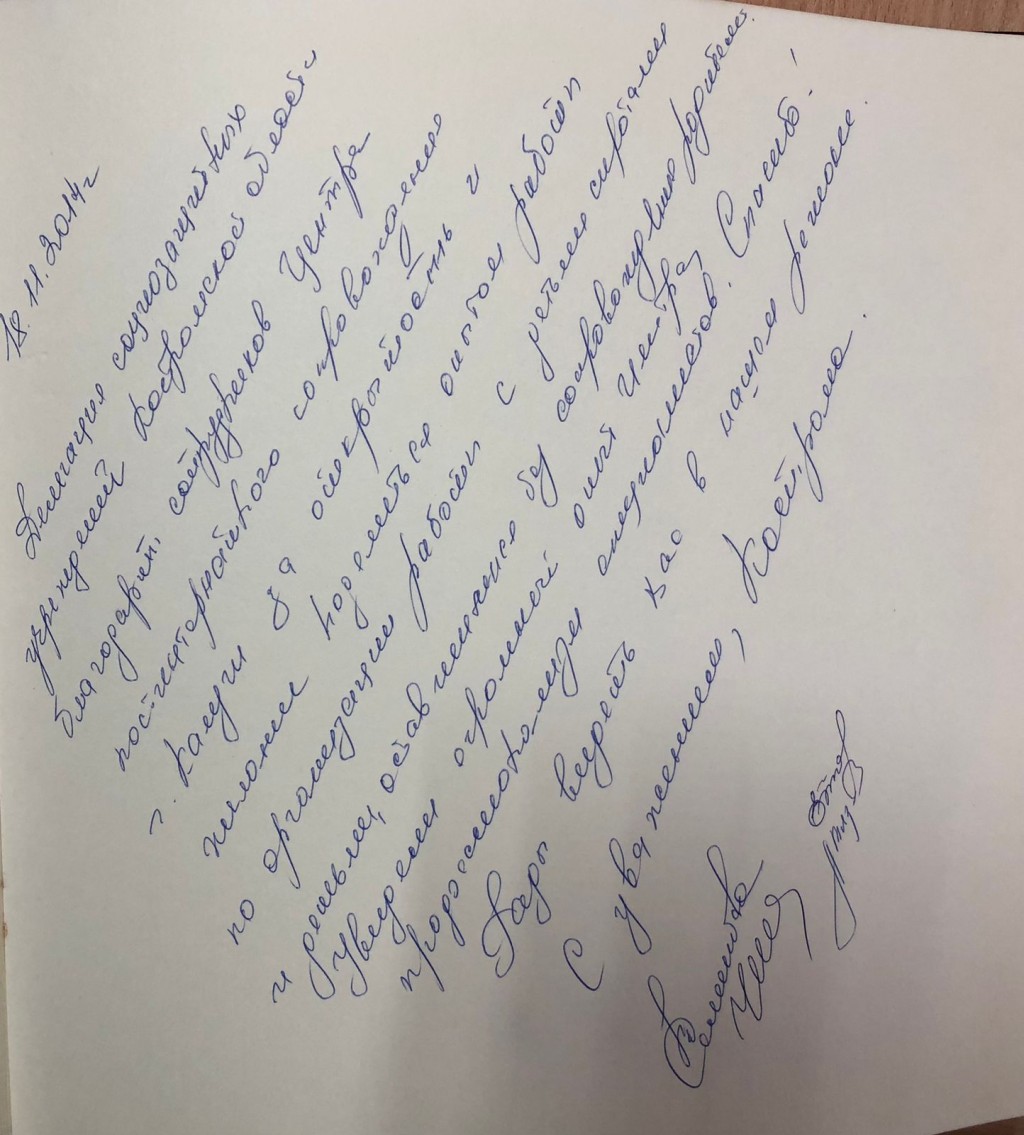 18.11.2014г
Делегация социозащитных
учреждений Костромской области
благодарит сотрудников Центра
постинтернатного сопровождения
г. Калуги за открытость и
желание поделиться опытом работы
по организации работы с детьми сиротами
и детьми, оставшимися без сопровождения родителей.
Уверены огромный опыт Центра,
профессионализм специалистов. Спасибо!
Рады видеть Вас в нашем регионе.
С уважением, Кострома.